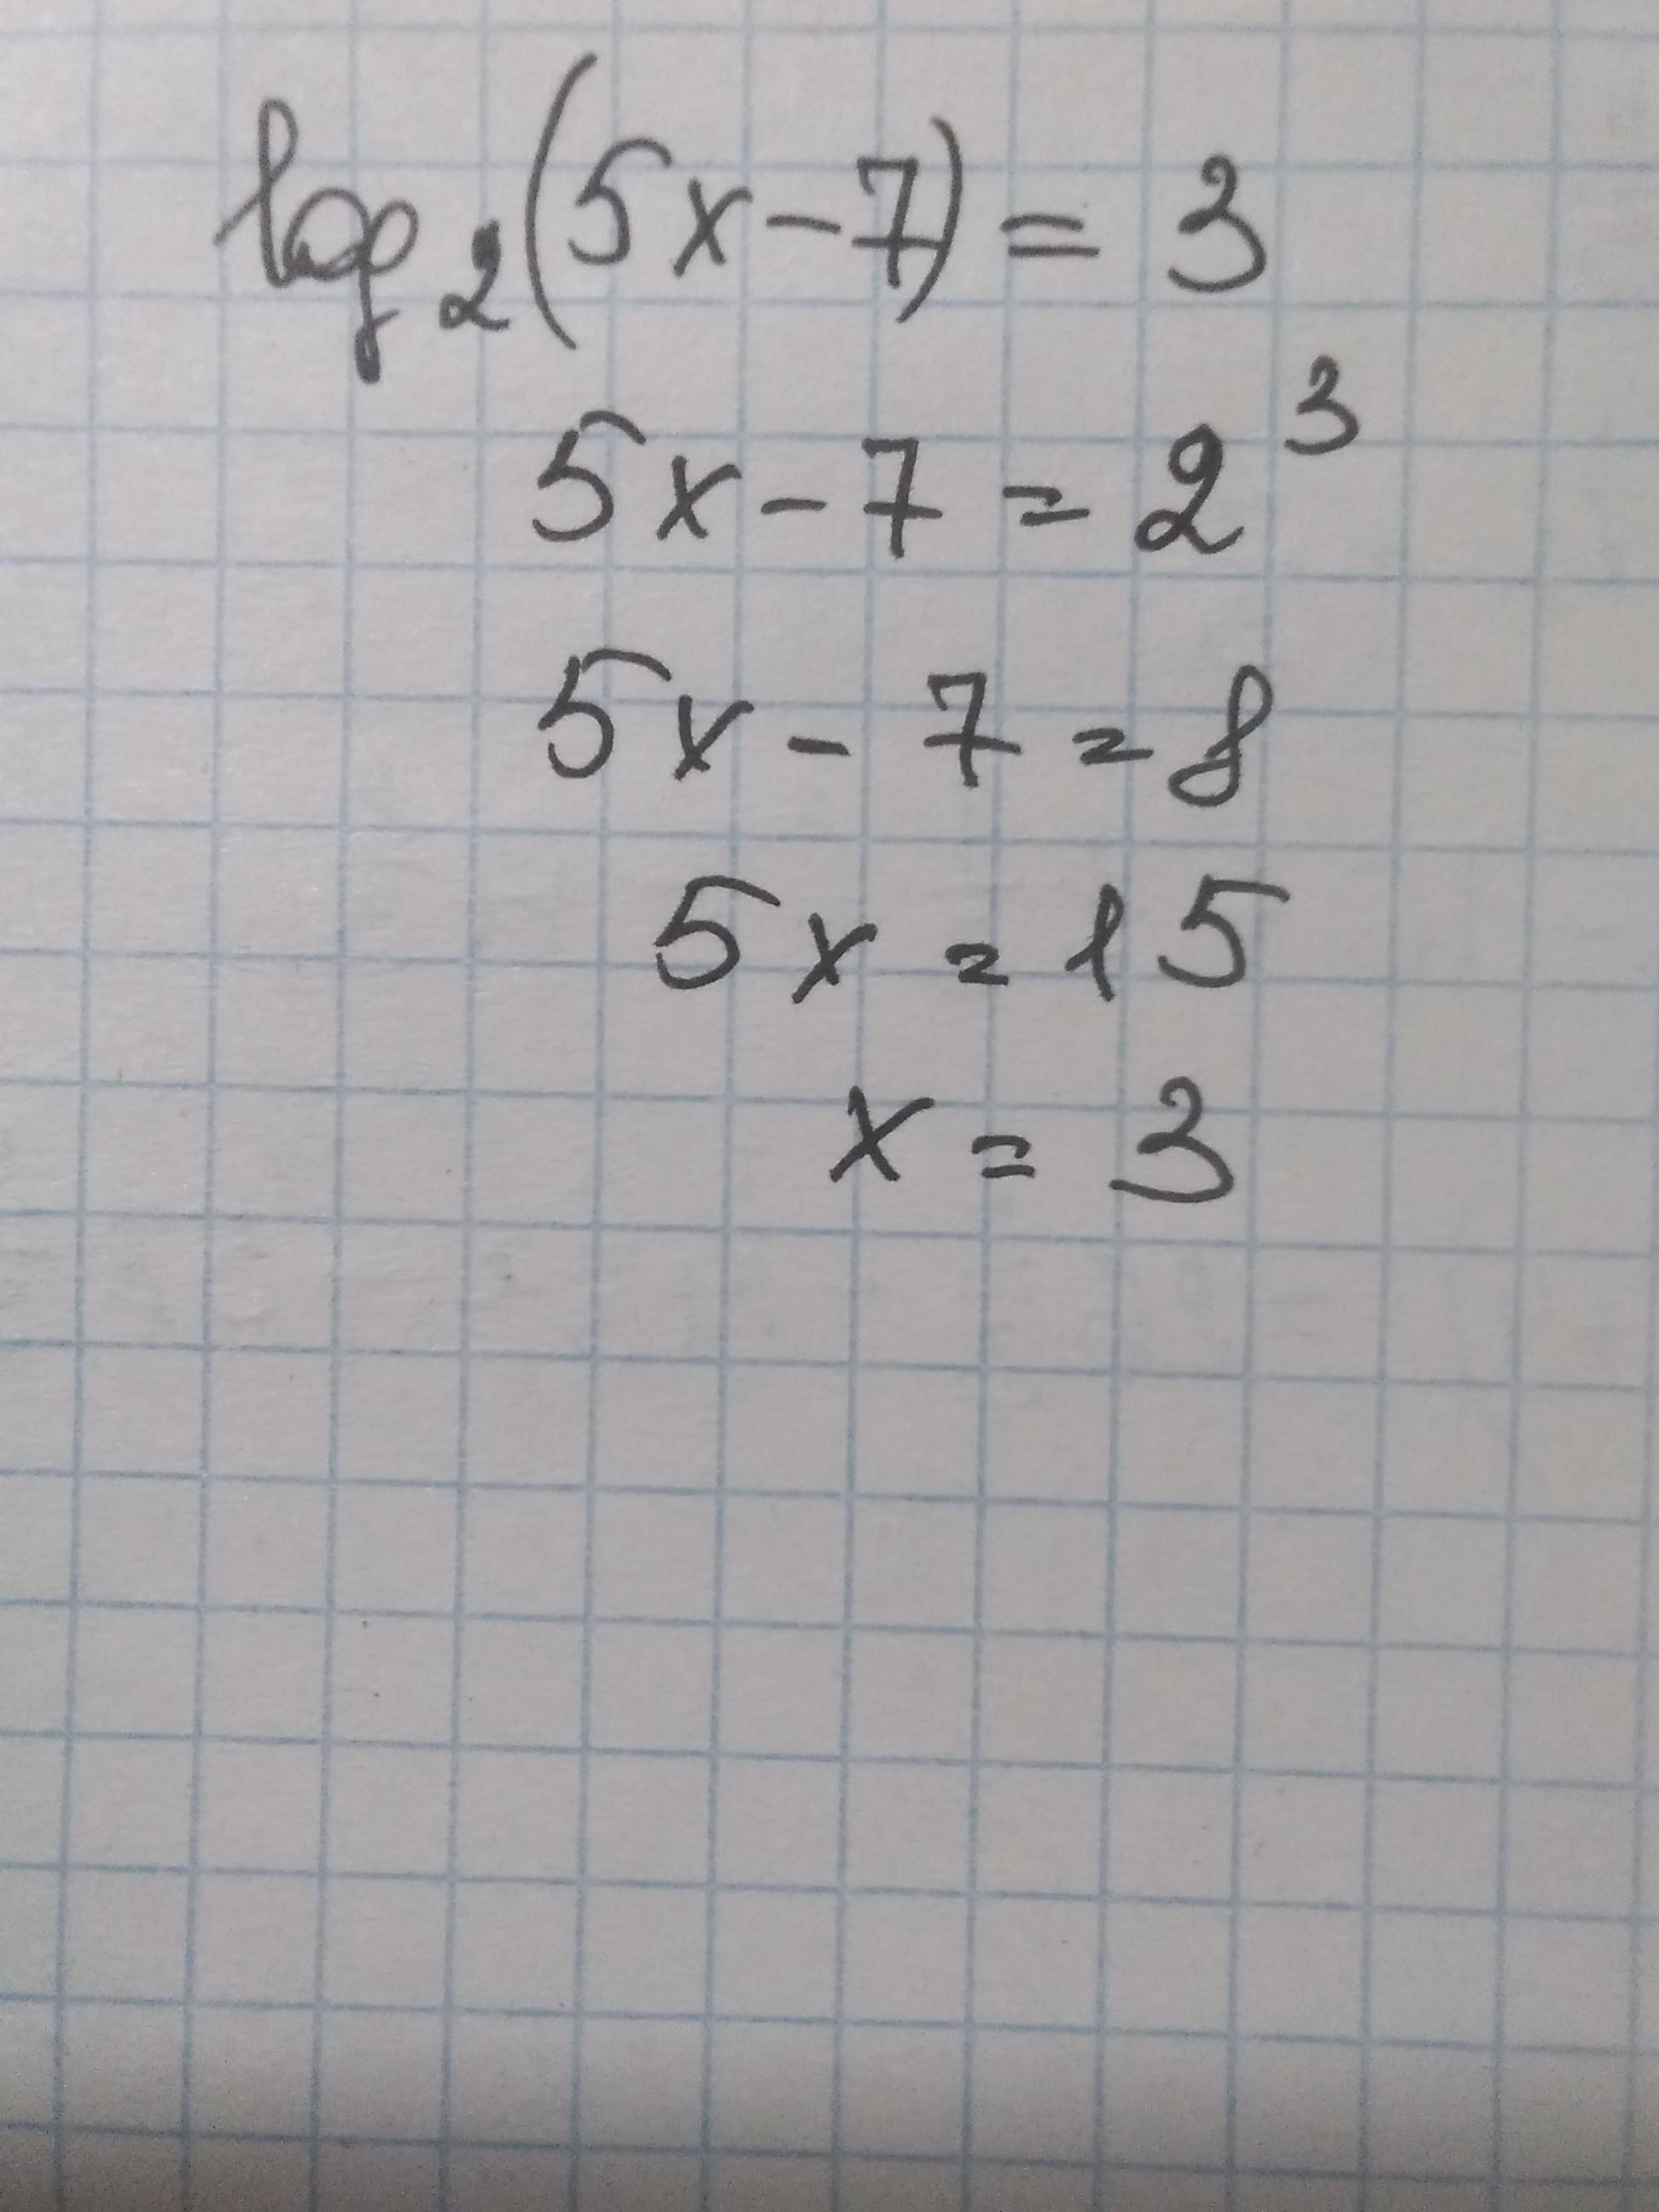 log₂(5x-7)=3
5x-7=2³
5x-7=8
5x=15
x=3